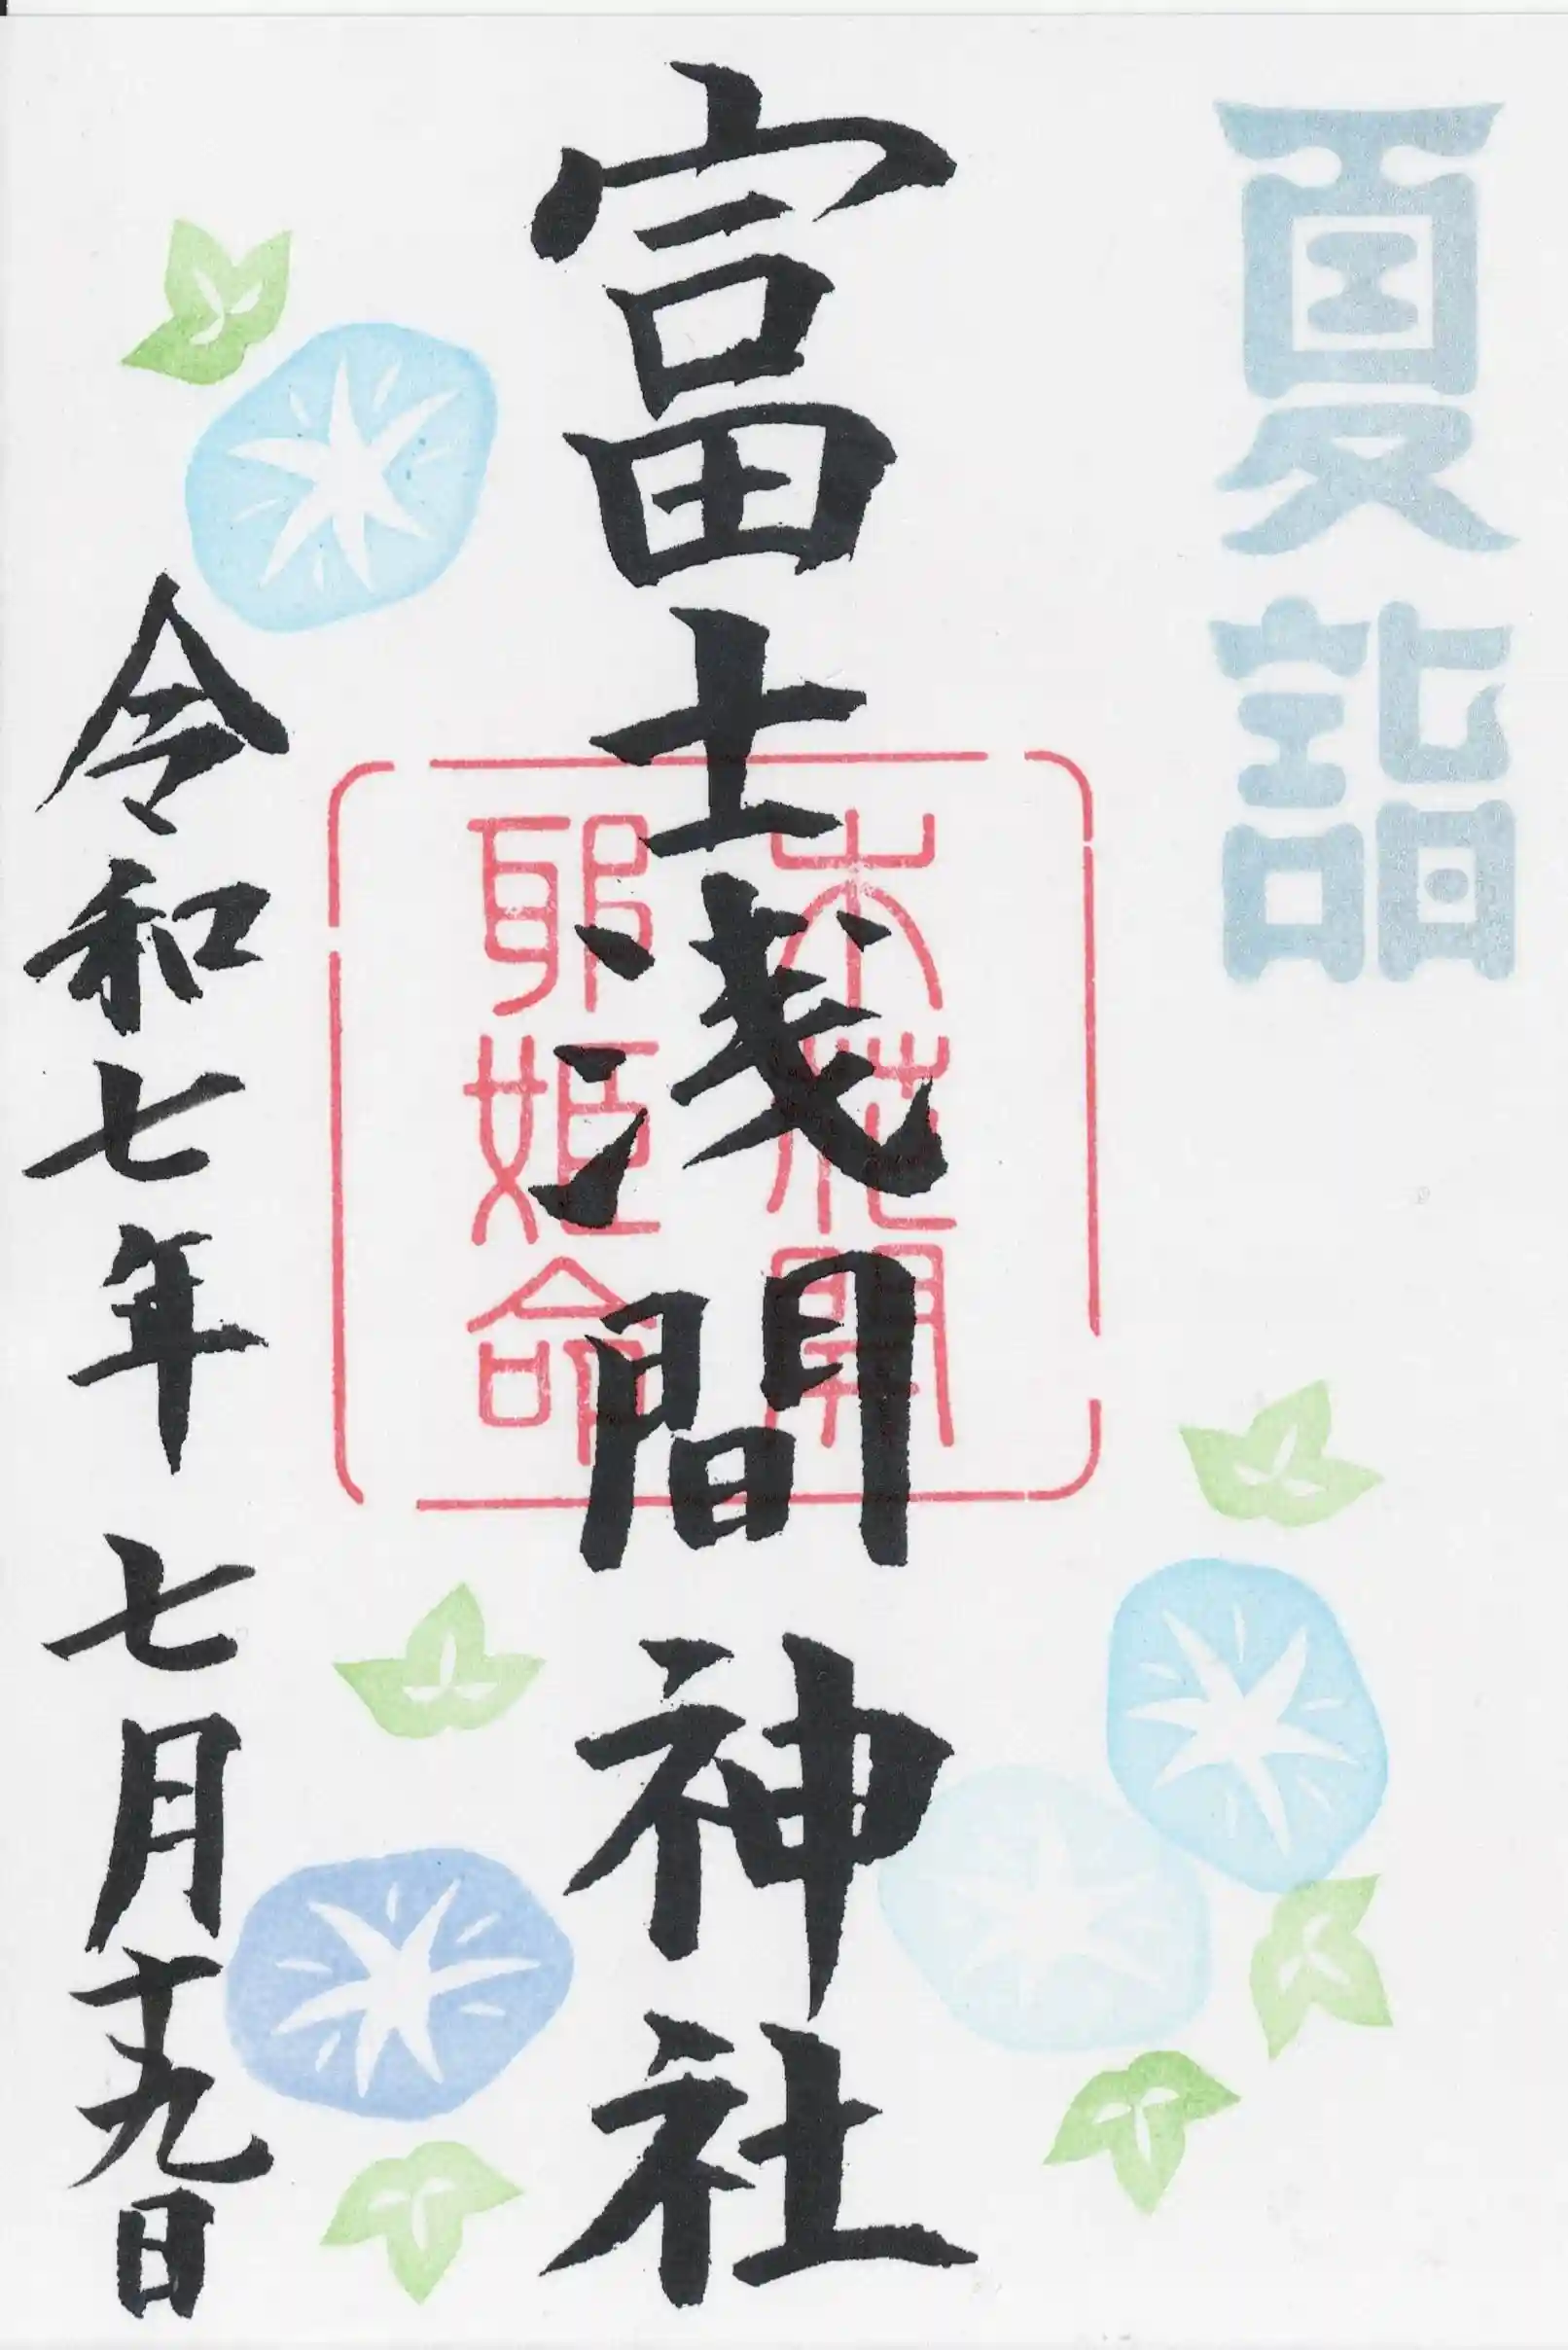 夏詣
富士浅間神社
木花開
耶姫命
令和七年 七月十九日